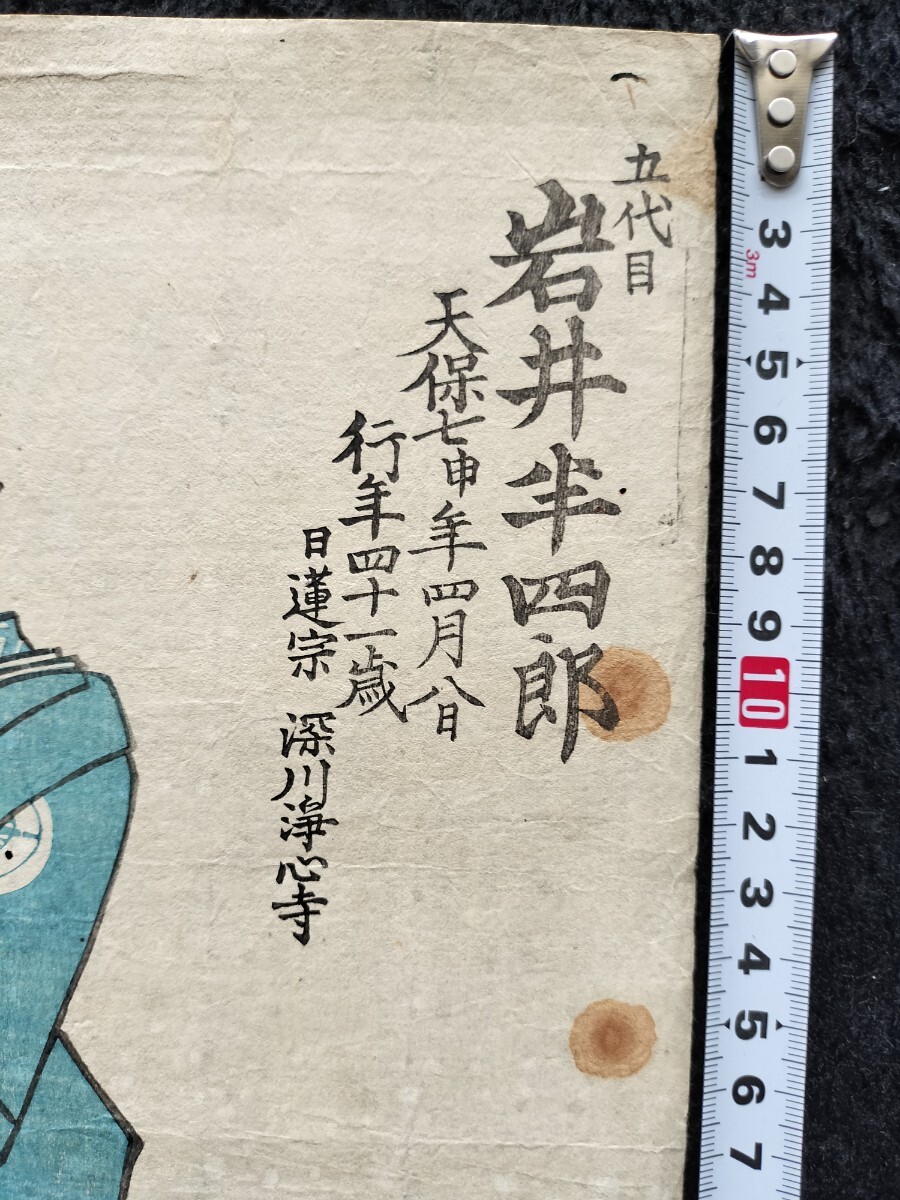 五代目
岩井半四郎
天保七申年四月八日
行年四十一歳
日蓮宗 深川浄心寺
3
3m
4
5
6
7
8
9
10
1
2
3
4
5
6
7